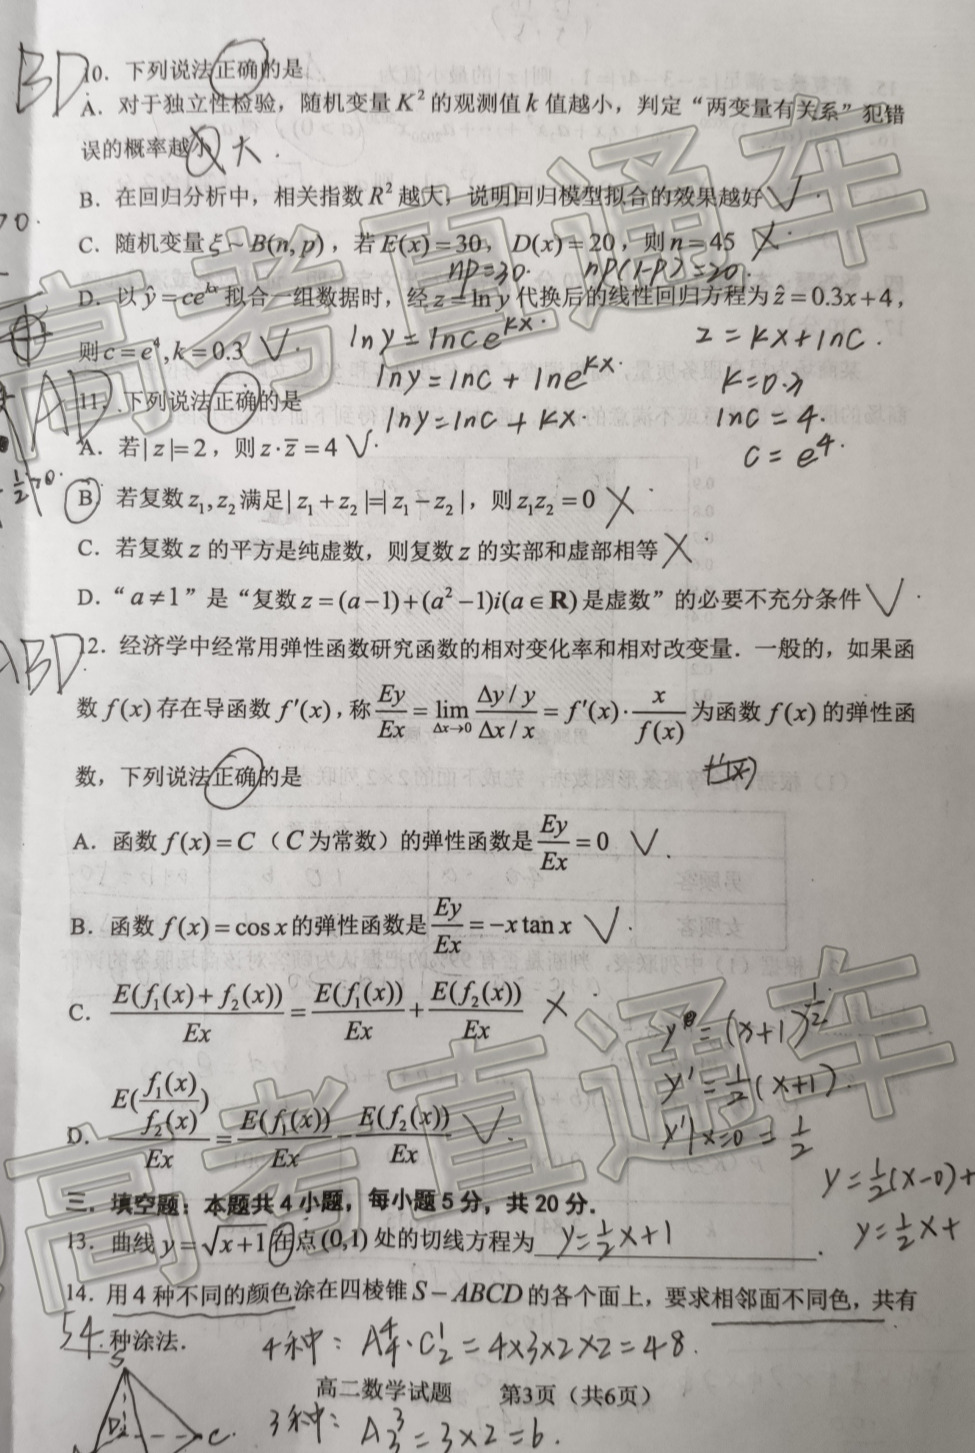 BD
10. 下列说法正确的是
A. 对于独立性检验，随机变量K²的观测值k值越小，判定“两变量有关系”犯错
误的概率越小 大.
B. 在回归分析中，相关指数R²越大，说明回归模型拟合的效果越好 √
C. 随机变量ξ~B(n,p)，若E(x)=30，D(x)=20，则n=45 ×
np=30. np(1-p)=20.
D. 以ŷ=ce^{kx}拟合一组数据时，经z=ln y代换后的线性回归方程为ẑ=0.3x+4，
则c=e⁴,k=0.3 √.
lny=lnce^{kx}. z=kx+lnc.
lny=lnc+lne^{kx}.
lny=lnc+kx.
lnc=4.
c=e⁴.
AD
11. 下列说法正确的是
A. 若|z|=2，则z·z̄=4 √.
B. 若复数z₁,z₂满足|z₁+z₂|=|z₁-z₂|，则z₁z₂=0 ×
C. 若复数z的平方是纯虚数，则复数z的实部和虚部相等 ×
D. “a≠1”是“复数z=(a-1)+(a²-1)i(a∈R)是虚数”的必要不充分条件 √.
ABD
12. 经济学中经常用弹性函数研究函数的相对变化率和相对改变量. 一般的，如果函
数f(x)存在导函数f′(x)，称Ey/Ex=lim_{Δx→0}(Δy/y)/(Δx/x)=f′(x)·x/f(x)为函数f(x)的弹性函
数，下列说法正确的是
A. 函数f(x)=C（C为常数）的弹性函数是Ey/Ex=0 √.
B. 函数f(x)=cos x的弹性函数是Ey/Ex=-x tan x √.
C. E(f₁(x)+f₂(x))/Ex=E(f₁(x))/Ex+E(f₂(x))/Ex ×
D. E(f₁(x)/f₂(x))/Ex=E(f₁(x))/Ex-E(f₂(x))/Ex √.
=(x+1)^{1/2}
y′=1/2(x+1)
y′|x=0=1/2
y=1/2(x-0)+
y=1/2x+
三. 填空题：本题共4小题，每小题5分，共20分.
13. 曲线y=√(x+1)在点(0,1)处的切线方程为 y=1/2x+1 .
14. 用4种不同的颜色涂在四棱锥S-ABCD的各个面上，要求相邻面不同色，共有
54 种涂法.
4种：A⁴₄·C¹₂=4×3×2×2=48.
高二数学试题 第3页（共6页）
3种：A³₃=3×2=6.
S
D
C
高考直通车
高考直通车